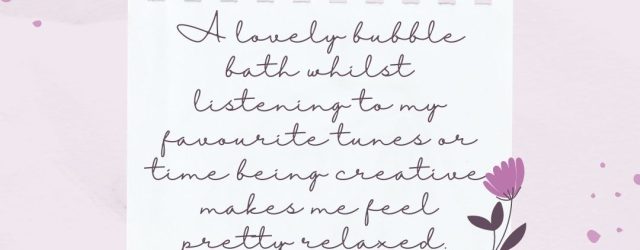 A lovely bubble
bath whilst
listening to my
favourite tunes or
time being creative
makes me feel
pretty relaxed.